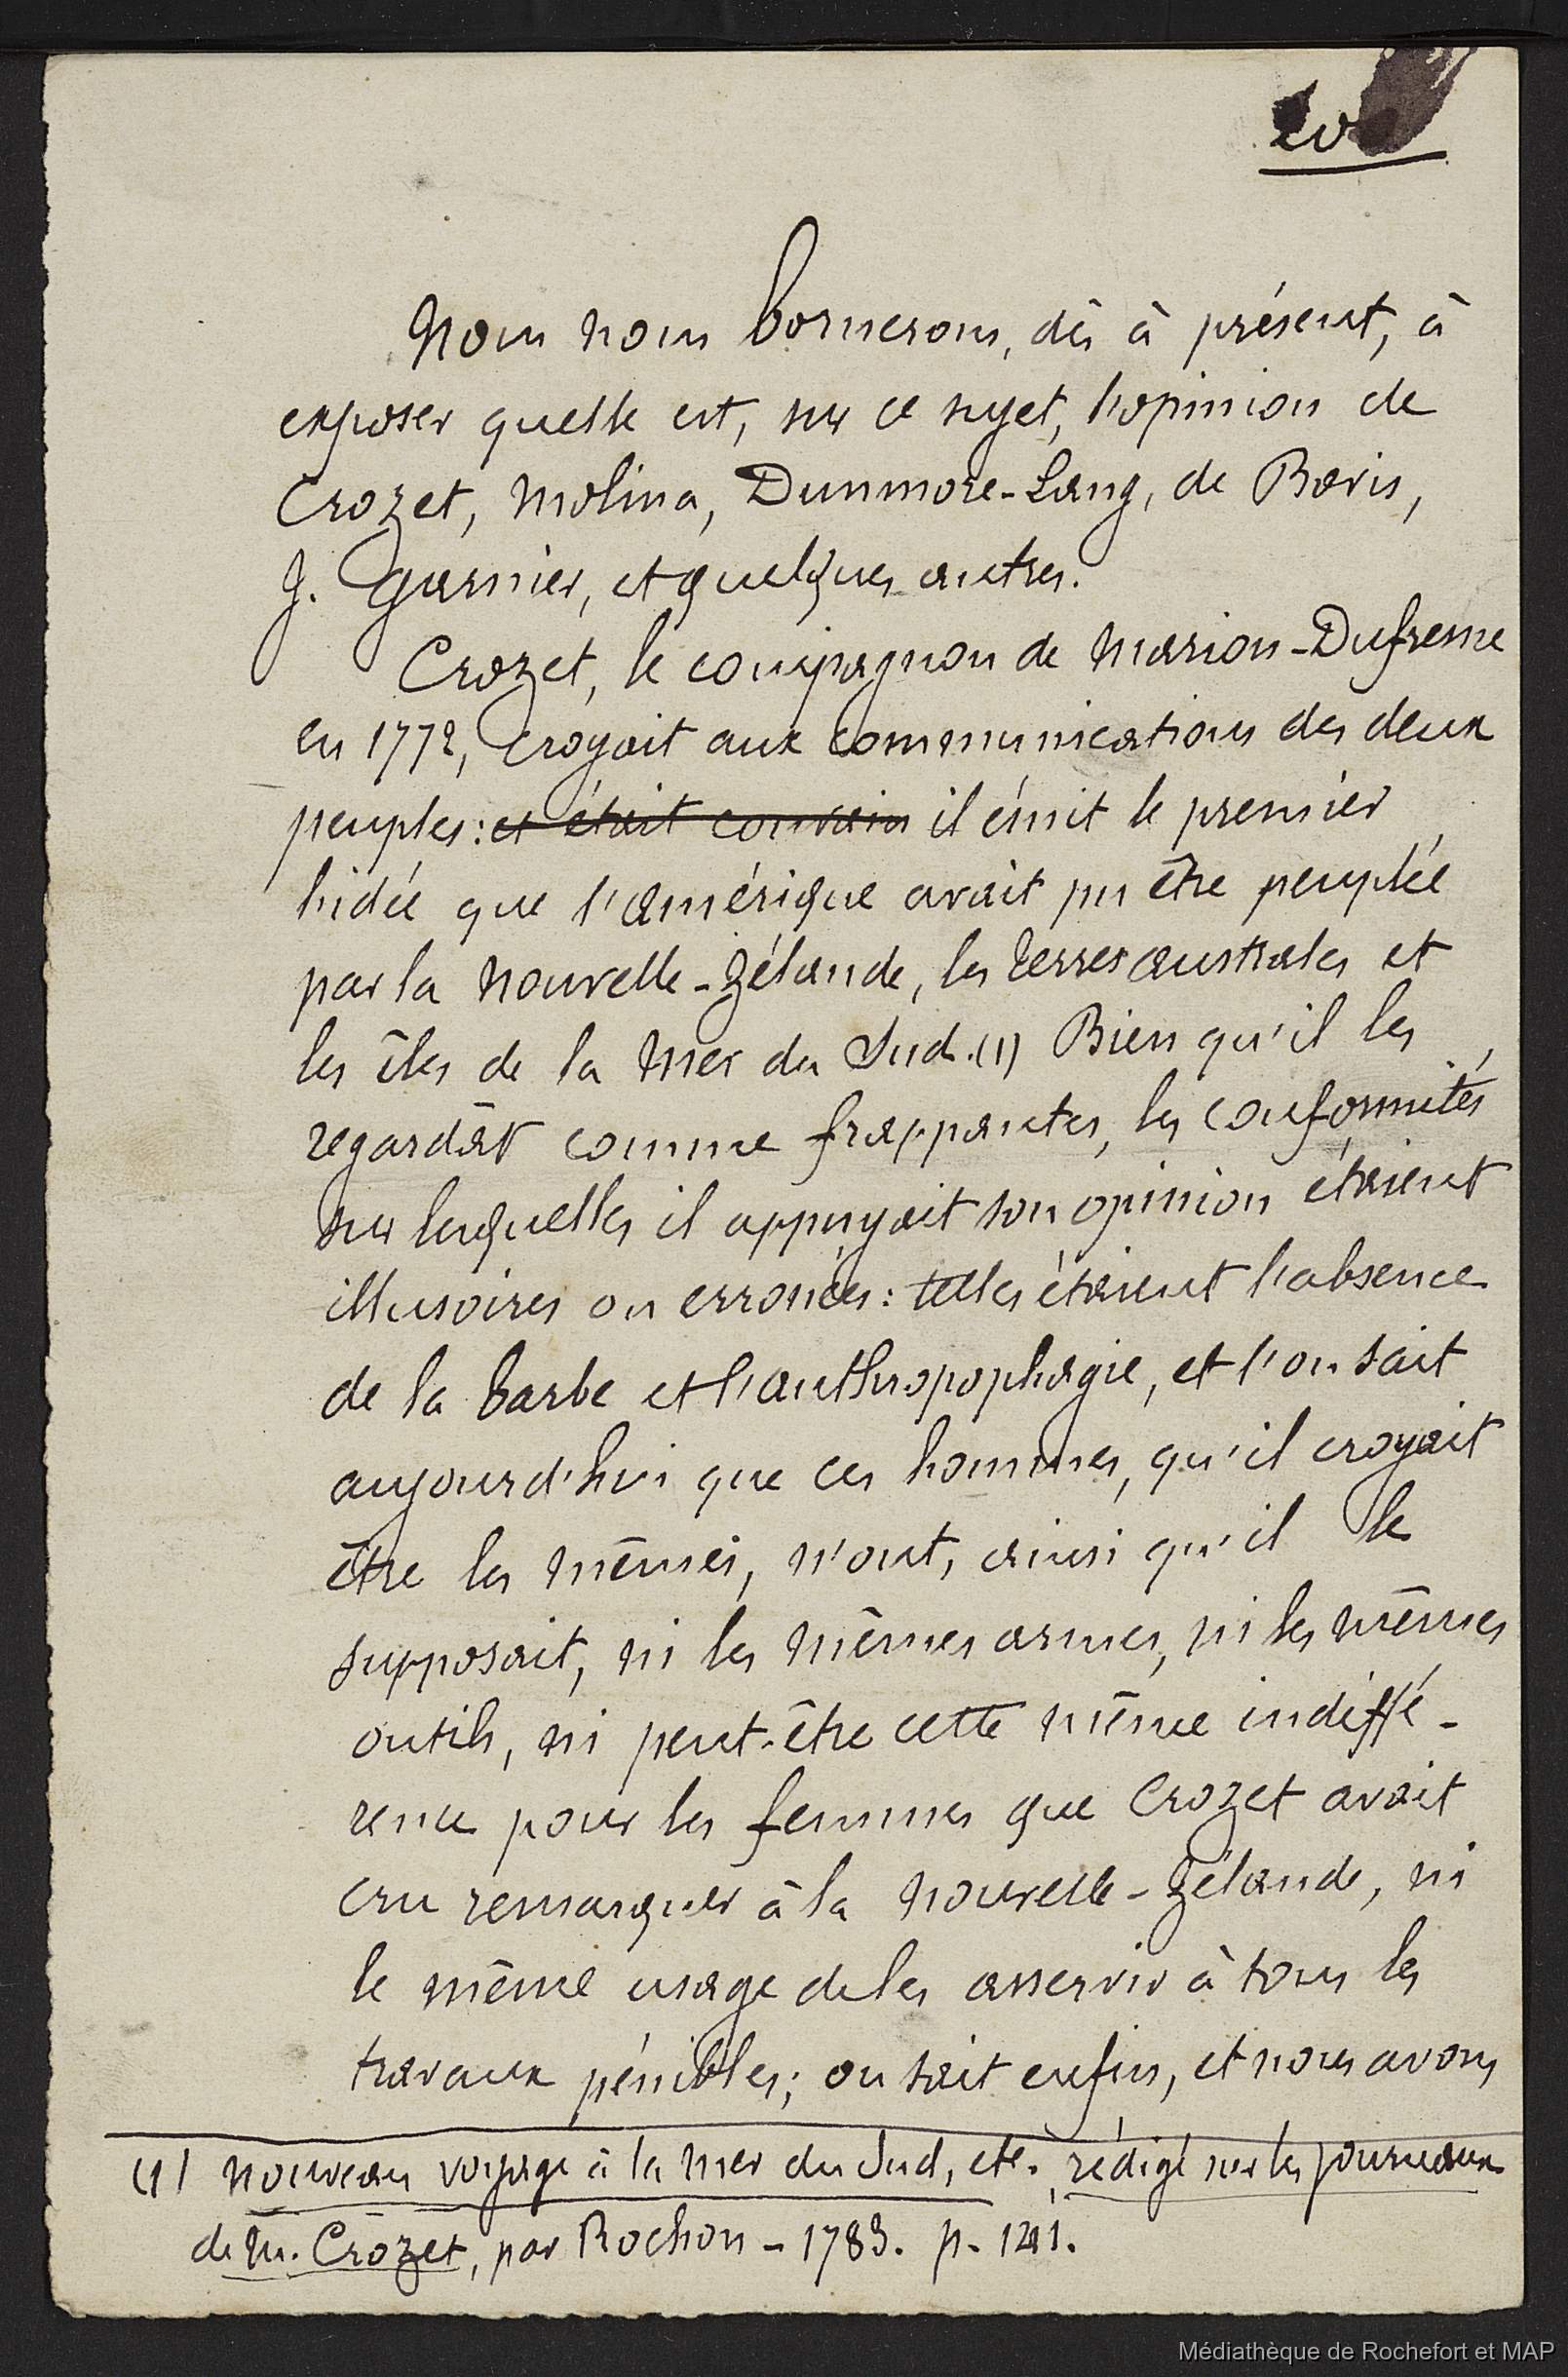 Nous nous bornerons, dès à présent, à
exposer quelle est, sur ce sujet, l'opinion de
Crozet, Molina, Dunmore-Lang, de Bovis,
J. Garnier, et quelques autres.
Crozet, le compagnon de Marion-Dufresne
en 1772, croyait aux communications des deux
peuples: et était convain il émit le premier
l'idée que l'amérique avait pu être peuplée
par la Nouvelle-Zélande, les Terres australes et
les îles de la Mer du Sud.(1) Bien qu'il les
regardât comme frappantes, les conformités
sur lesquelles il appuyait son opinion étaient
illusoires ou erronées: telles étaient l'absence
de la barbe et l'anthropophagie, et l'on sait
aujourd'hui que ces hommes, qu'il croyait
être les mêmes, n'ont, ainsi qu'il le
supposait, ni les mêmes armes, ni les mêmes
outils, ni peut-être cette même indiffé-
rence pour les femmes que Crozet avait
cru remarquer à la Nouvelle-Zélande, ni
le même usage de les asservir à tous les
travaux pénibles; on sait enfin, et nous avons
(1) Nouveau voyage à la Mer du Sud, etc. rédigé sur les journaux
de M. Crozet, par Rochon - 1783. p.
Médiathèque de Rochefort et MAP